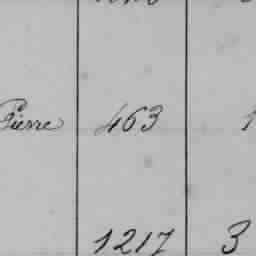 Pierre 463 1
1217 3